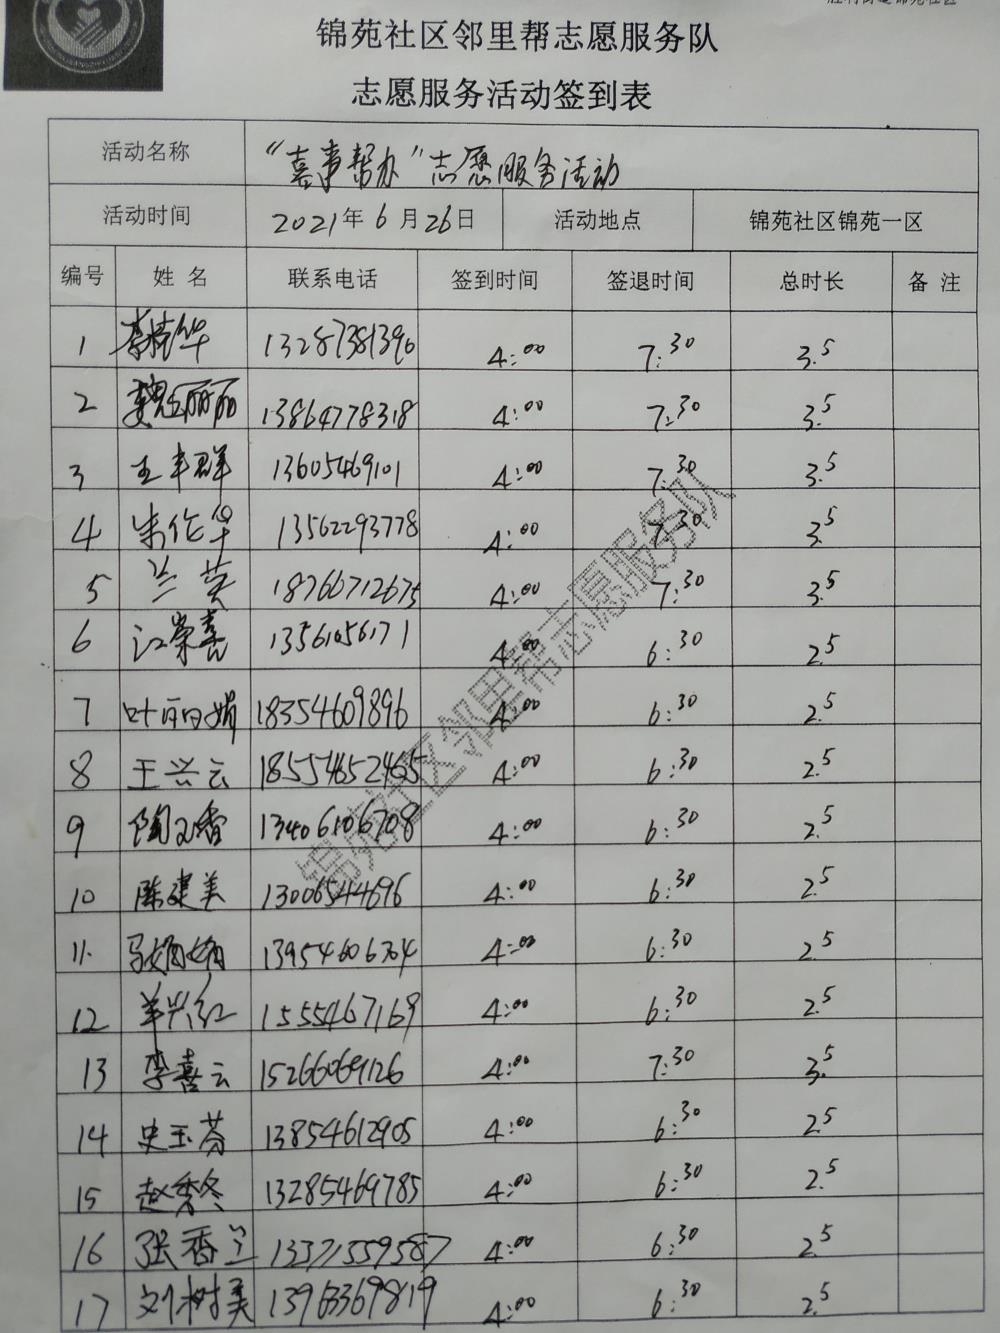 锦苑社区邻里帮志愿服务队
志愿服务活动签到表
活动名称 “喜事帮办”志愿服务活动
活动时间 2021年6月26日 活动地点 锦苑社区锦苑一区
编号 姓名 联系电话 签到时间 签退时间 总时长 备注
1 13287381396 4:00 7:30 3.5
2 魏丽丽 13864778318 4:00 7:30 3.5
3 王丰群 13605469101 4:00 7:30 3.5
4 朱伦华 13562293778 4:00 7:30 3.5
5 兰英 18766712675 4:00 7:30 3.5
6 江崇喜 13561056171 4:00 6:30 2.5
7 叶丽娟 18354609896 4:00 6:30 2.5
8 王兴云 18554652465 4:00 6:30 2.5
9 陶香 13406106708 4:00 6:30 2.5
10 陈建美 13006544696 4:00 6:30 2.5
11. 马娟娟 13954606704 4:00 6:30 2.5
12 羊兴红 1555467169 4:00 6:30 2.5
13 李喜云 15266069126 4:00 7:30 3.5
14 史玉芬 13854612905 4:00 6:30 2.5
15 赵秀冬 13285469785 4:00 6:30 2.5
16 张香兰 13371559587 4:00 6:30 2.5
17 刘树美 13963369819 4:00 6:30 2.5
锦苑社区邻里帮志愿服务队